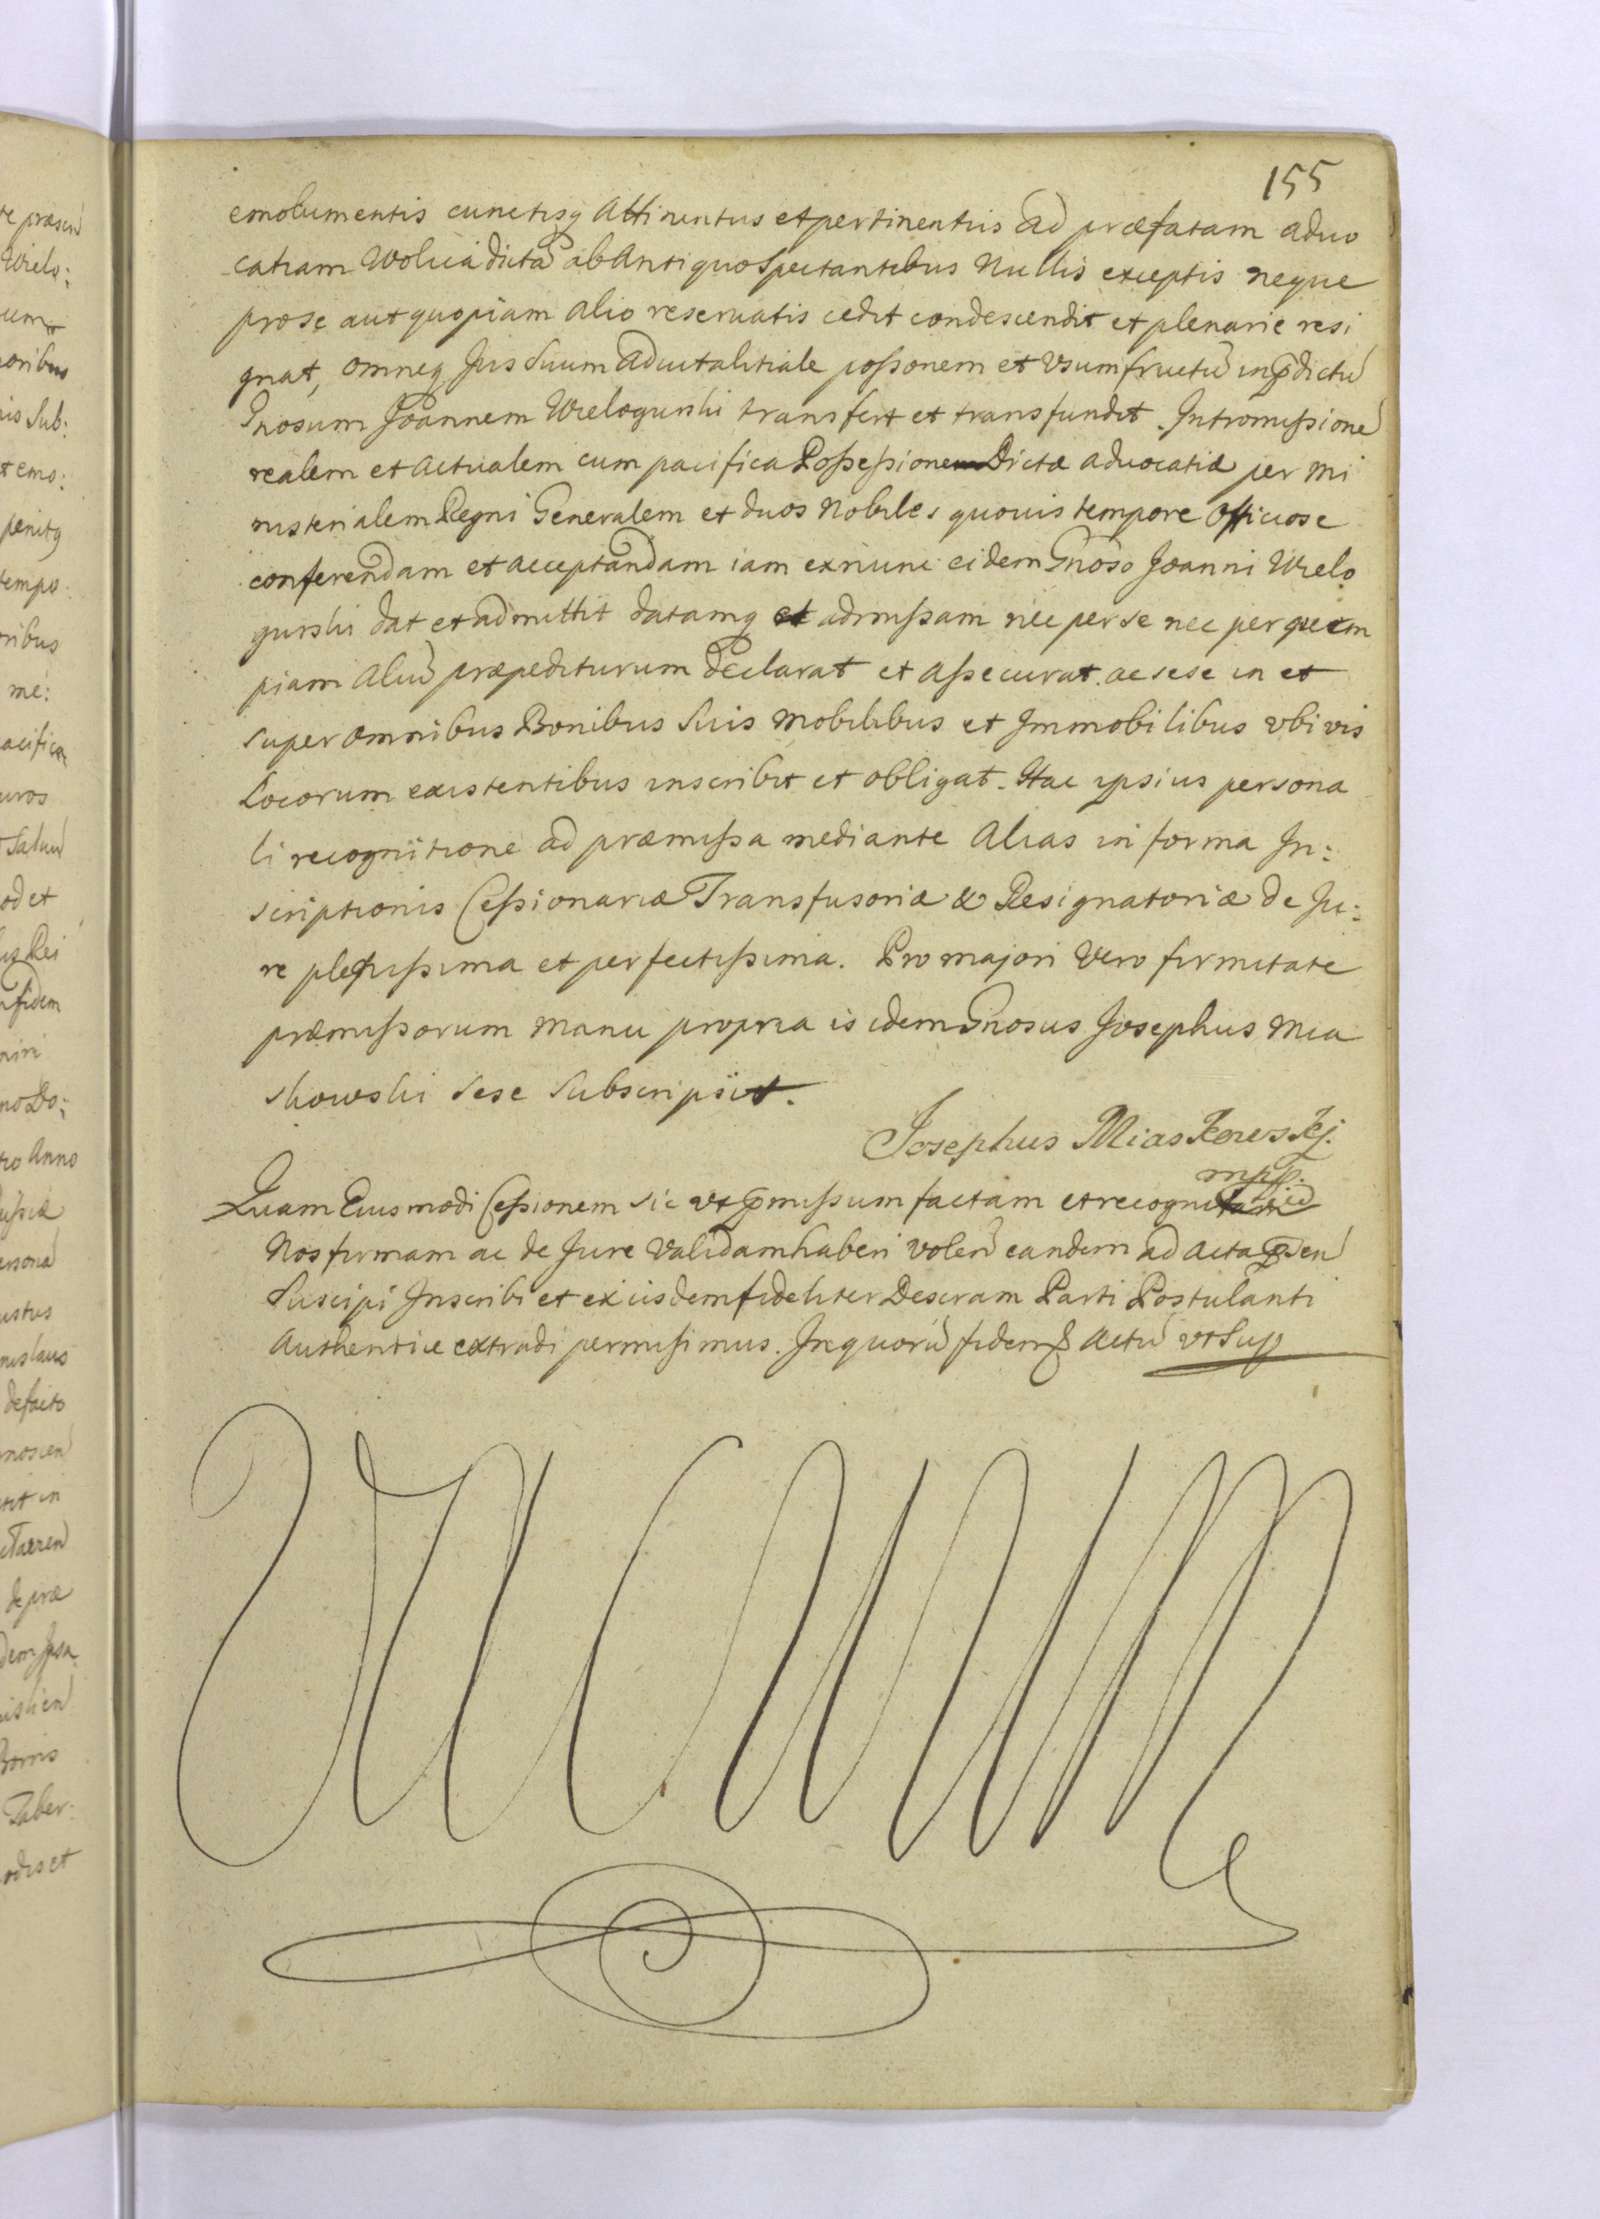 155
emolumentis cunctisq Attinentiis et pertinentiis ad præfatam aduo
catiam Wolica dictã ab Antiquo Spectantibus Nullis exceptis neque
pro se aut quopiam alio reseruatis cedit condescendit et plenarie resi
gnat, omneq Jus Suum aduitalitiale poßonem et Usumfructũ in p̱dictũ
Gnosum Joannem Wielogurski transfert et transfundit. Intromißionẽ
realem et actualem cum pacifica Poßeßione Dictæ aduocatiæ per Mi
nisterialem Regni Generalem et duos Nobiles quouis tempore Officiose
conferendam et acceptandam iam exnunc eidem Gnoso Joanni Wielo
gurski dat et admittit datamq et admißam nec per se nec per quem
piam aliũ præpediturum declarat et aßecurat. ac sese in et
super omnibus Bonibus Suis Mobilibus et Immobilibus vbi vis
Locorum existentibus inscribit et obligat. Hac ipsius persona
li recognitione ad præmißa mediante Alias in forma In:
scriptionis Ceßionariæ Transfusoriæ & Resignatoriæ de Ju:
re plenißima et perfectißima. Pro majori Vero firmitate
præmißorum manu propria is idem Gnosus Josephus Mia
skowski sese Subscripsit.
Josephus Miaskowskj.
mpp.
Quam Eiusmodi Ceßionem sic vt p̱mißum factam et recognitam
Nos firmam ac de Jure Validam haberi volen̄ eandem ad Acta p̱den̄
Suscipi Inscribi et ex iisdem fideliter Descram Parti Postulanti
Authentice extradi permisimus. In quorũ fidem & Actũ vt Sup